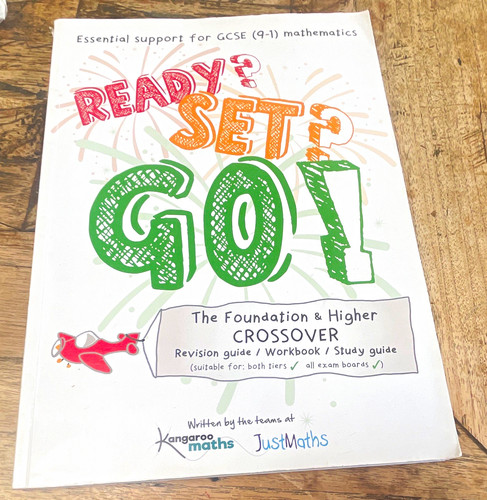 Essential support for GCSE (9-1) mathematics
READY?
SET?
GO!
The Foundation & Higher
CROSSOVER
Revision guide / Workbook / Study guide
(suitable for: both tiers ✓ all exam boards ✓)
Written by the teams at
Kangaroo maths JustMaths